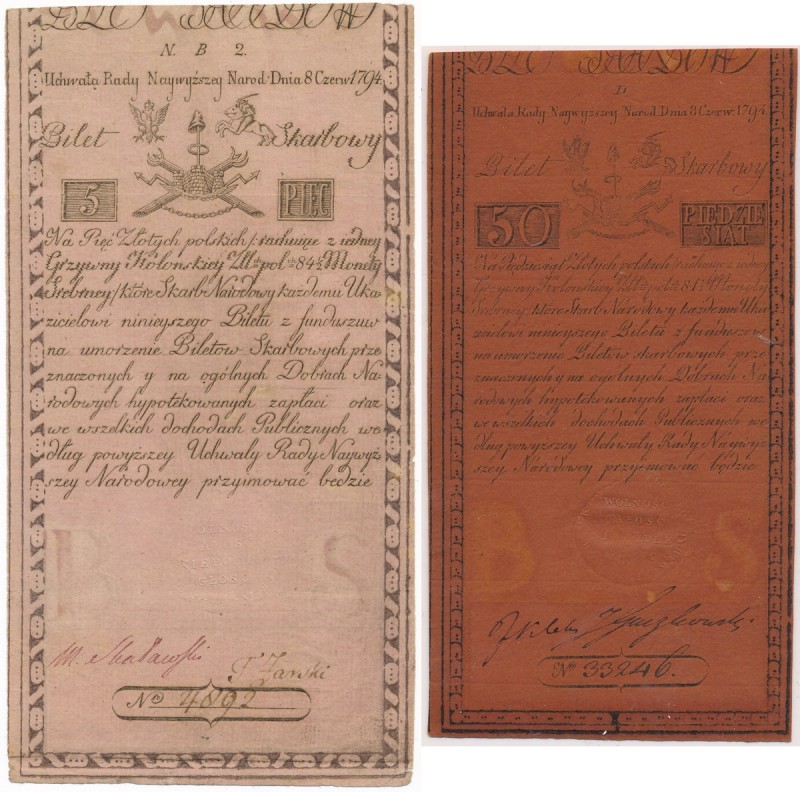 N. B 2.
Uchwała Rady Naywyższey Narod: Dnia 8 Czerw: 1794.
Bilet Skarbowy
5 PIĘĆ
Na Pięć Złotych polskich /:rachuiąc z iedney
Grzywny Kolońskiey Zł: pol: 84½ Monety
Srebrney/ które Skarb Narodowy każdemu Uka-
zicielowi ninieyszego Biletu z funduszuw
na umorzenie Biletow Skarbowych prze
znaczonych y na ogólnych Dobrach Na-
rodowych hypotekowanych zapłaci oraz
we wszelkich dochodach Publicznych we
dług powyższey Uchwały Rady Naywyż
szey Narodowey przyimować będzie
B S
M. Skaławski
F. Żarski
No 4892
D
Uchwała Rady Naywyższey Narod: Dnia 8 Czerw: 1794.
Bilet Skarbowy
50 PIĘDZIE
SIĄT
Na Pięćdziesiąt Złotych polskich /:rachuiąc z iedney
Grzywny Kolońskiey Zł: pol: 84½ Monety
Srebrney: które Skarb Narodowy każdemu Uka
zicielowi ninieyszego Biletu z funduszow
na umorzenie Biletów skarbowych prze
znaczonych y na ogolnych Dobrach Na
rodowych hypotekowanych zapłaci oraz
we wszelkich dochodach Publicznych we
dług powyższey Uchwały Rady Naywyż
szey Narodowey przyjemować będzie
B S
No 33246.